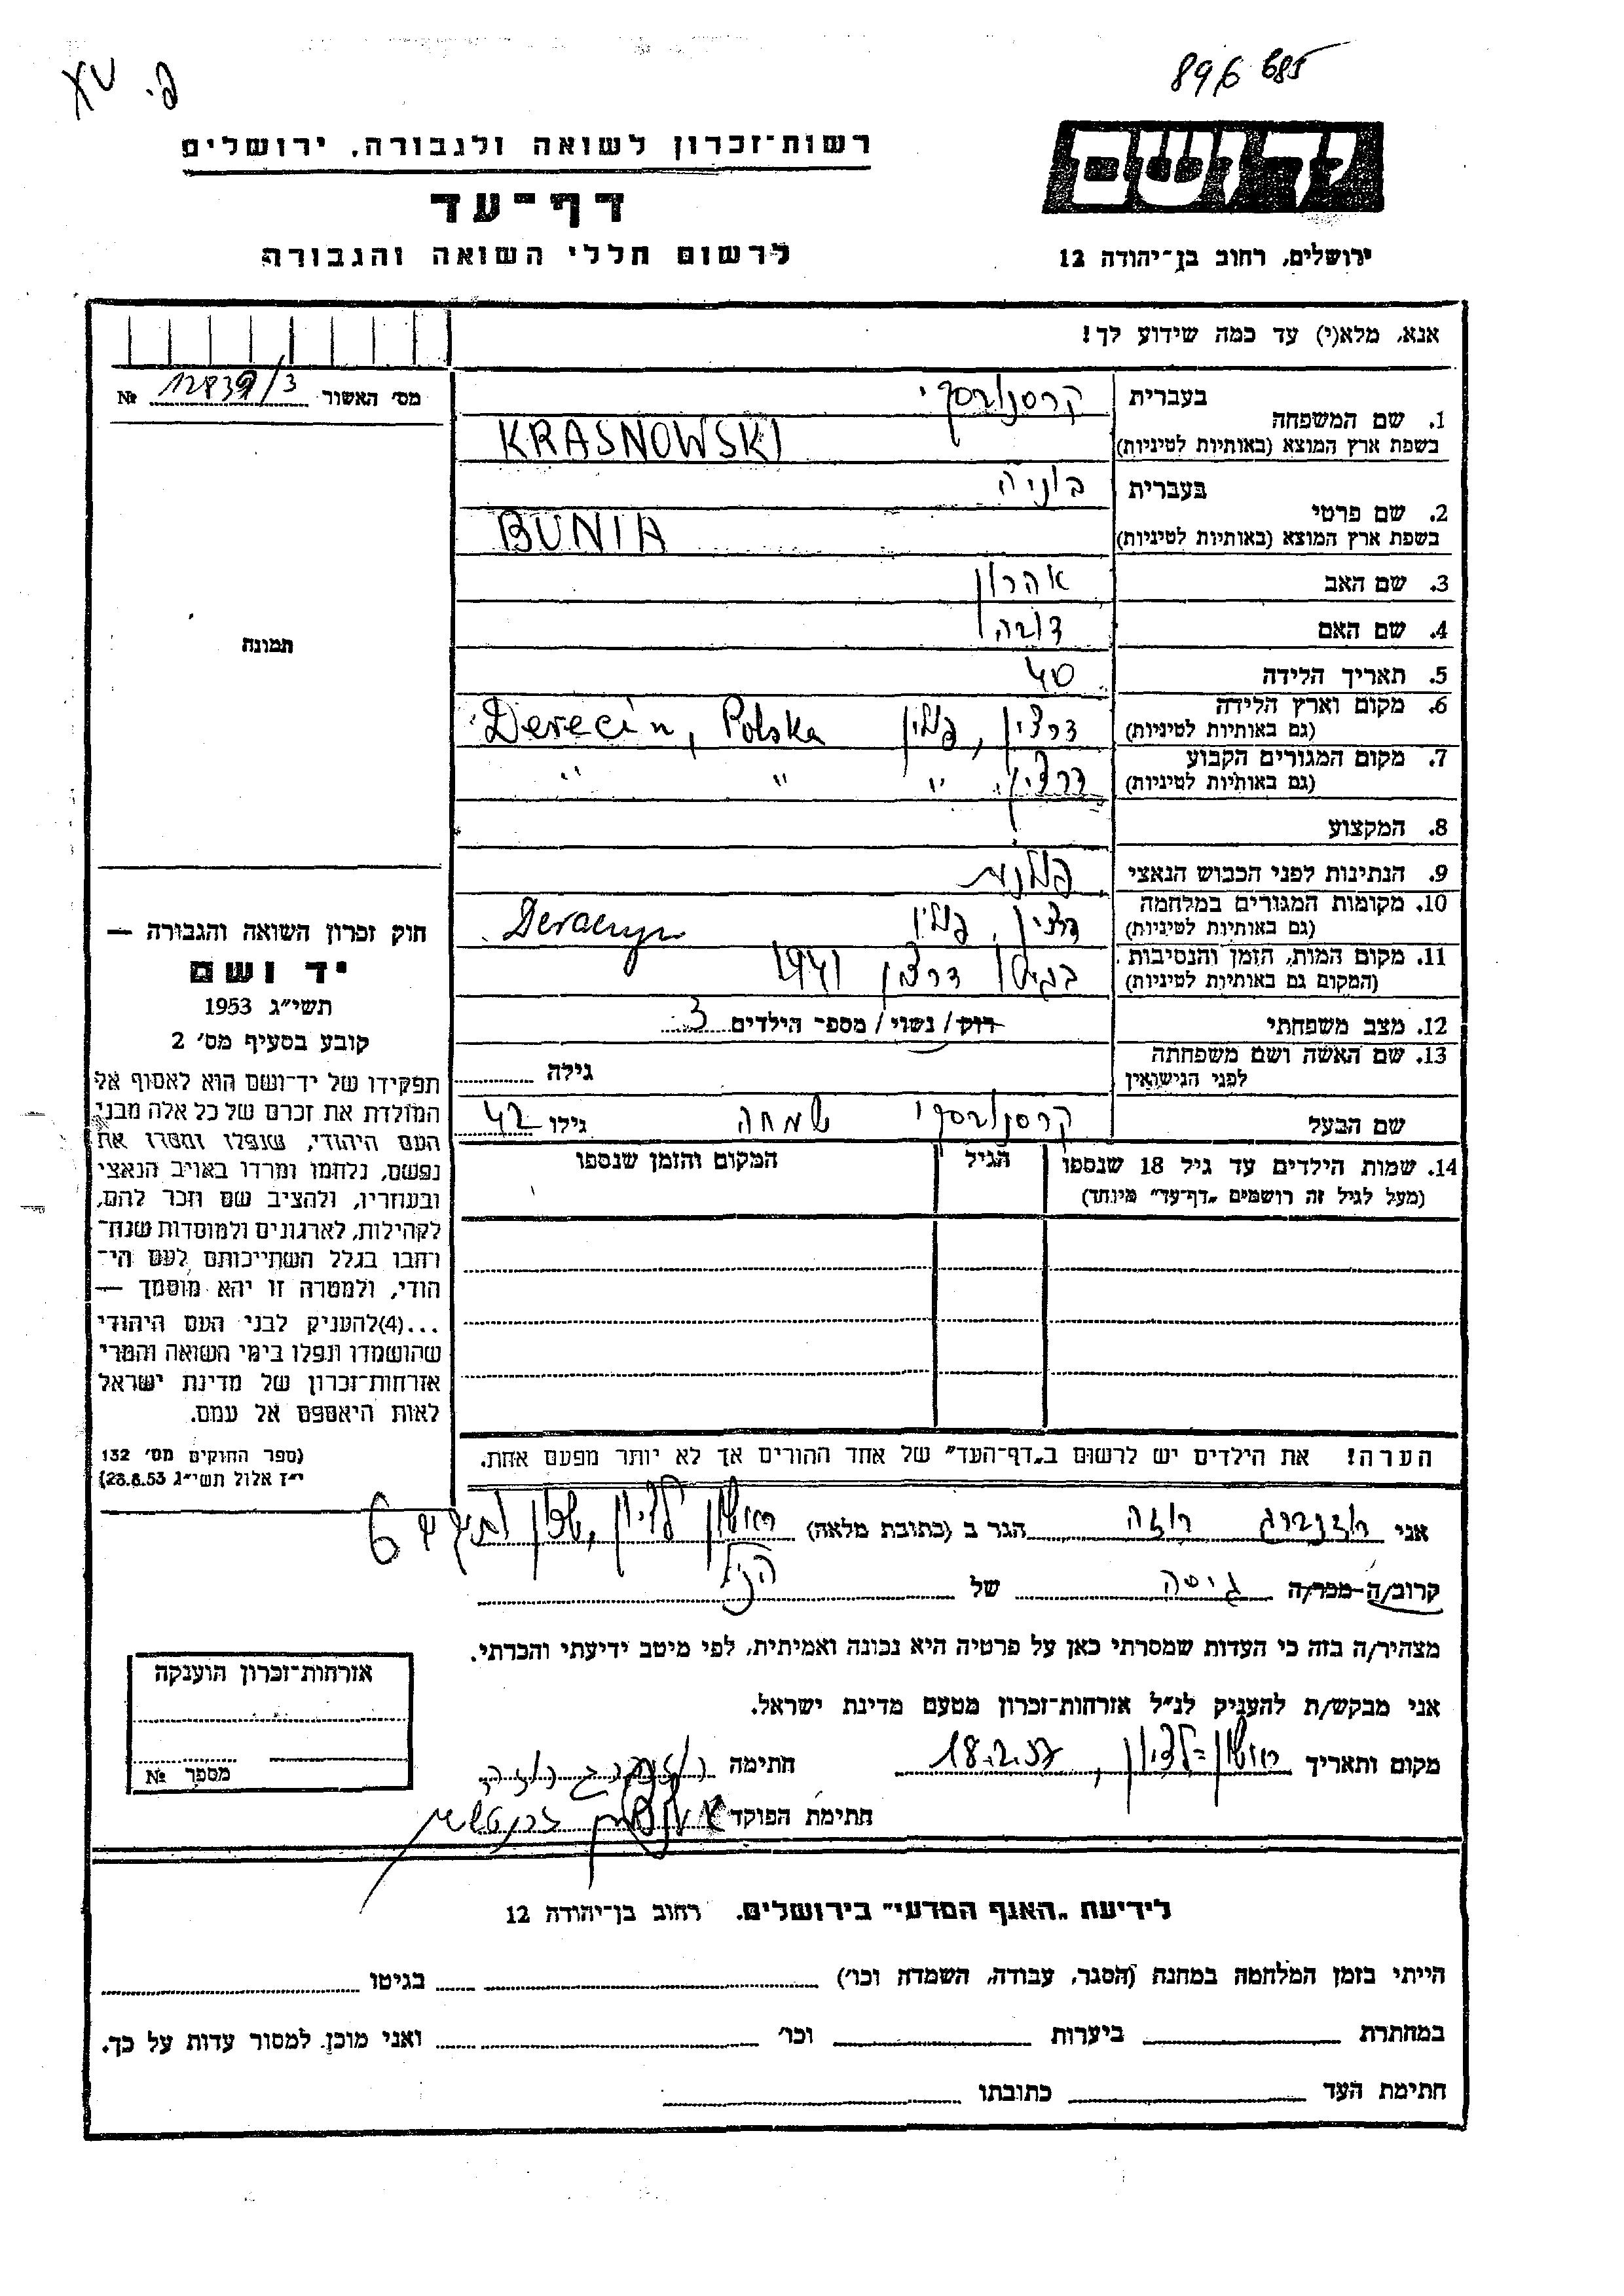 896 685
פ. XV
יד ושם
רשות־זכרון לשואה ולגבורה, ירושלים
דף־עד
ירושלים, רחוב בן־יהודה 12
לרשום חללי השואה והגבורה
אנא, מלא(י) עד כמה שידוע לך!
מס׳ האשור 12839/3 №
תמונה
בעברית קרסנובסקי
1. שם המשפחה
בשפת ארץ המוצא (באותיות לטיניות) KRASNOWSKI
בעברית בוניה
2. שם פרטי
בשפת ארץ המוצא (באותיות לטיניות) BUNIA
3. שם האב אהרון
4. שם האם
5. תאריך הלידה 40
6. מקום וארץ הלידה
(גם באותיות לטיניות) דרצין, פולין Derecin, Polska
7. מקום המגורים הקבוע
(גם באותיות לטיניות) דרצין, " " "
8. המקצוע
9. הנתינות לפני הכבוש הנאצי פולנית
10. מקומות המגורים במלחמה
(גם באותיות לטיניות) דרצין, פולין Deraczyn
11. מקום המות, הזמן והנסיבות
(המקום גם באותיות לטיניות) בגיטו דרצין 1941
12. מצב משפחתי רוק/נשוי/מספר הילדים 3
13. שם האשה ושם משפחתה
לפני הנישואין גילה
שם הבעל קרסנובסקי שמחה גילו 42
14. שמות הילדים עד גיל 18 שנספו הגיל המקום והזמן שנספו
(מעל לגיל זה רושמים „דף־עד" מיוחד)
הערה! את הילדים יש לרשום ב„דף־העד" של אחד ההורים אך לא יותר מפעם אחת.
חוק זכרון השואה והגבורה —
יד ושם
תשי״ג 1953
קובע בסעיף מס׳ 2
תפקידו של יד־ושם הוא לאסוף אל
המולדת את זכרם של כל אלה מבני
העם היהודי, שנפלו ומסרו את
נפשם, נלחמו ומרדו באויב הנאצי
ובעוזריו, ולהציב שם וזכר להם,
לקהילות, לארגונים ולמוסדות שנח־
רבו בגלל השתייכותם לעם הי־
הודי, ולמטרה זו יהא מוסמך —
...(4)להעניק לבני העם היהודי
שהושמדו ונפלו בימי השואה והמרי
אזרחות־זכרון של מדינת ישראל
לאות היאספם אל עמם.
(ספר החוקים מס׳ 132
י״ז אלול תשי״ג 28.8.53)
אני רוזנברג רוזה הגר ב (כתובת מלאה) ראשון לציון, שכון ותיקים 6
קרוב/ה־מכר/ה גיסה של הנ״ל
מצהיר/ה בזה כי העדות שמסרתי כאן על פרטיה היא נכונה ואמיתית, לפי מיטב ידיעתי והכרתי.
אני מבקש/ת להעניק לנ״ל אזרחות־זכרון מטעם מדינת ישראל.
מקום ותאריך ראשון־לציון, 18.2.57 חתימה רוזנברג רוזה
חתימת הפוקד
אזרחות־זכרון הוענקה
מספר №
לידיעת „האגף המדעי" בירושלים. רחוב בן־יהודה 12
הייתי בזמן המלחמה במחנה (הסגר, עבודה, השמדה וכו׳) בגיטו
במחתרת ביערות וכו׳ ואני מוכן למסור עדות על כך.
חתימת העד כתובתו